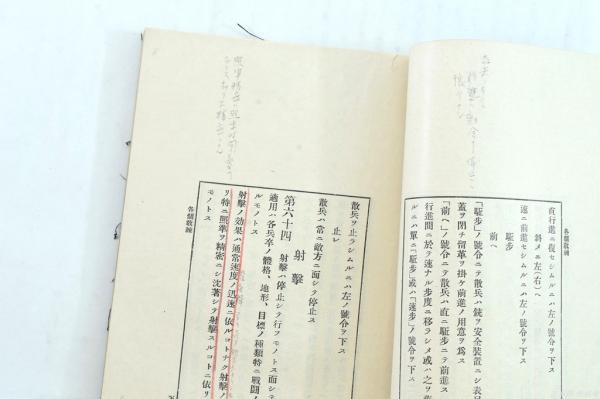 各個教練
直行進ニ復セシムルニハ左ノ號令ヲ下ス
斜メニ左(右)ヘ
速ニ前進セシムルニハ左ノ號令ヲ下ス
駈步
前ヘ
「駈步」ノ號令ニテ散兵ハ銃ヲ安全裝置ニシ表尺
蓋ヲ閉チ留革ヲ掛ケ前進ノ用意ヲ爲ス
「前ヘ」ノ號令ニテ散兵ハ直ニ駈步ニテ前進ス
行進間ニ於テ速ナル步度ニ移ラシメ或ハ之ヲ
ルニハ單ニ「駈步」或ハ「速步」ノ號令ヲ下ス
散兵ヲ止ラシムルニハ左ノ號令ヲ下ス
止レ
散兵ハ常ニ敵方ニ面シテ停止ス
第六十四 射擊
射擊ハ停止シテ行フモノトス而シテ
適用ハ各兵卒ノ體格、地形、目標ノ種類特ニ戰鬪
ルモノトス
射擊ノ効果ハ通常速度ノ迅速ニ依ルコトナク射擊ノ
リ特ニ照準ヲ精密ニシ沈著シテ射擊スルコトニ依リ
モノトス
各個教練